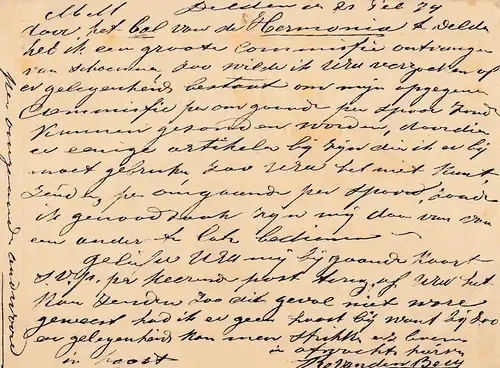 M M Delden den 21 Feb 79
door het bal van de Hermonia te Delde
heb ik een groote Commissie ontvangen
van schoenen, zoo wilde ik UEd verzoeken of
er gelegenheid bestaat om mijn opgegeven
Commissie per omgaande per spoor zoud
kunnen gezonden worden, doordien
er eenige artikelen bij zijn die ik er bij
moet gebruiken zoo UEd het niet kunt
zenden, per omgaande per spoor, zoude
ik genoodzaakt zijn mij dan van
een ander te laten bedienen
gelieve UEd mij bijgaande kaart
S.V.P. per keerende post terug of UEd het
kan zenden zoo dit geval niet ware
geweest had ik er geen haast bij want bij zoo
een gelegenheid kan men
in haast in afwachting
van den Berg
per omgaande antwoord